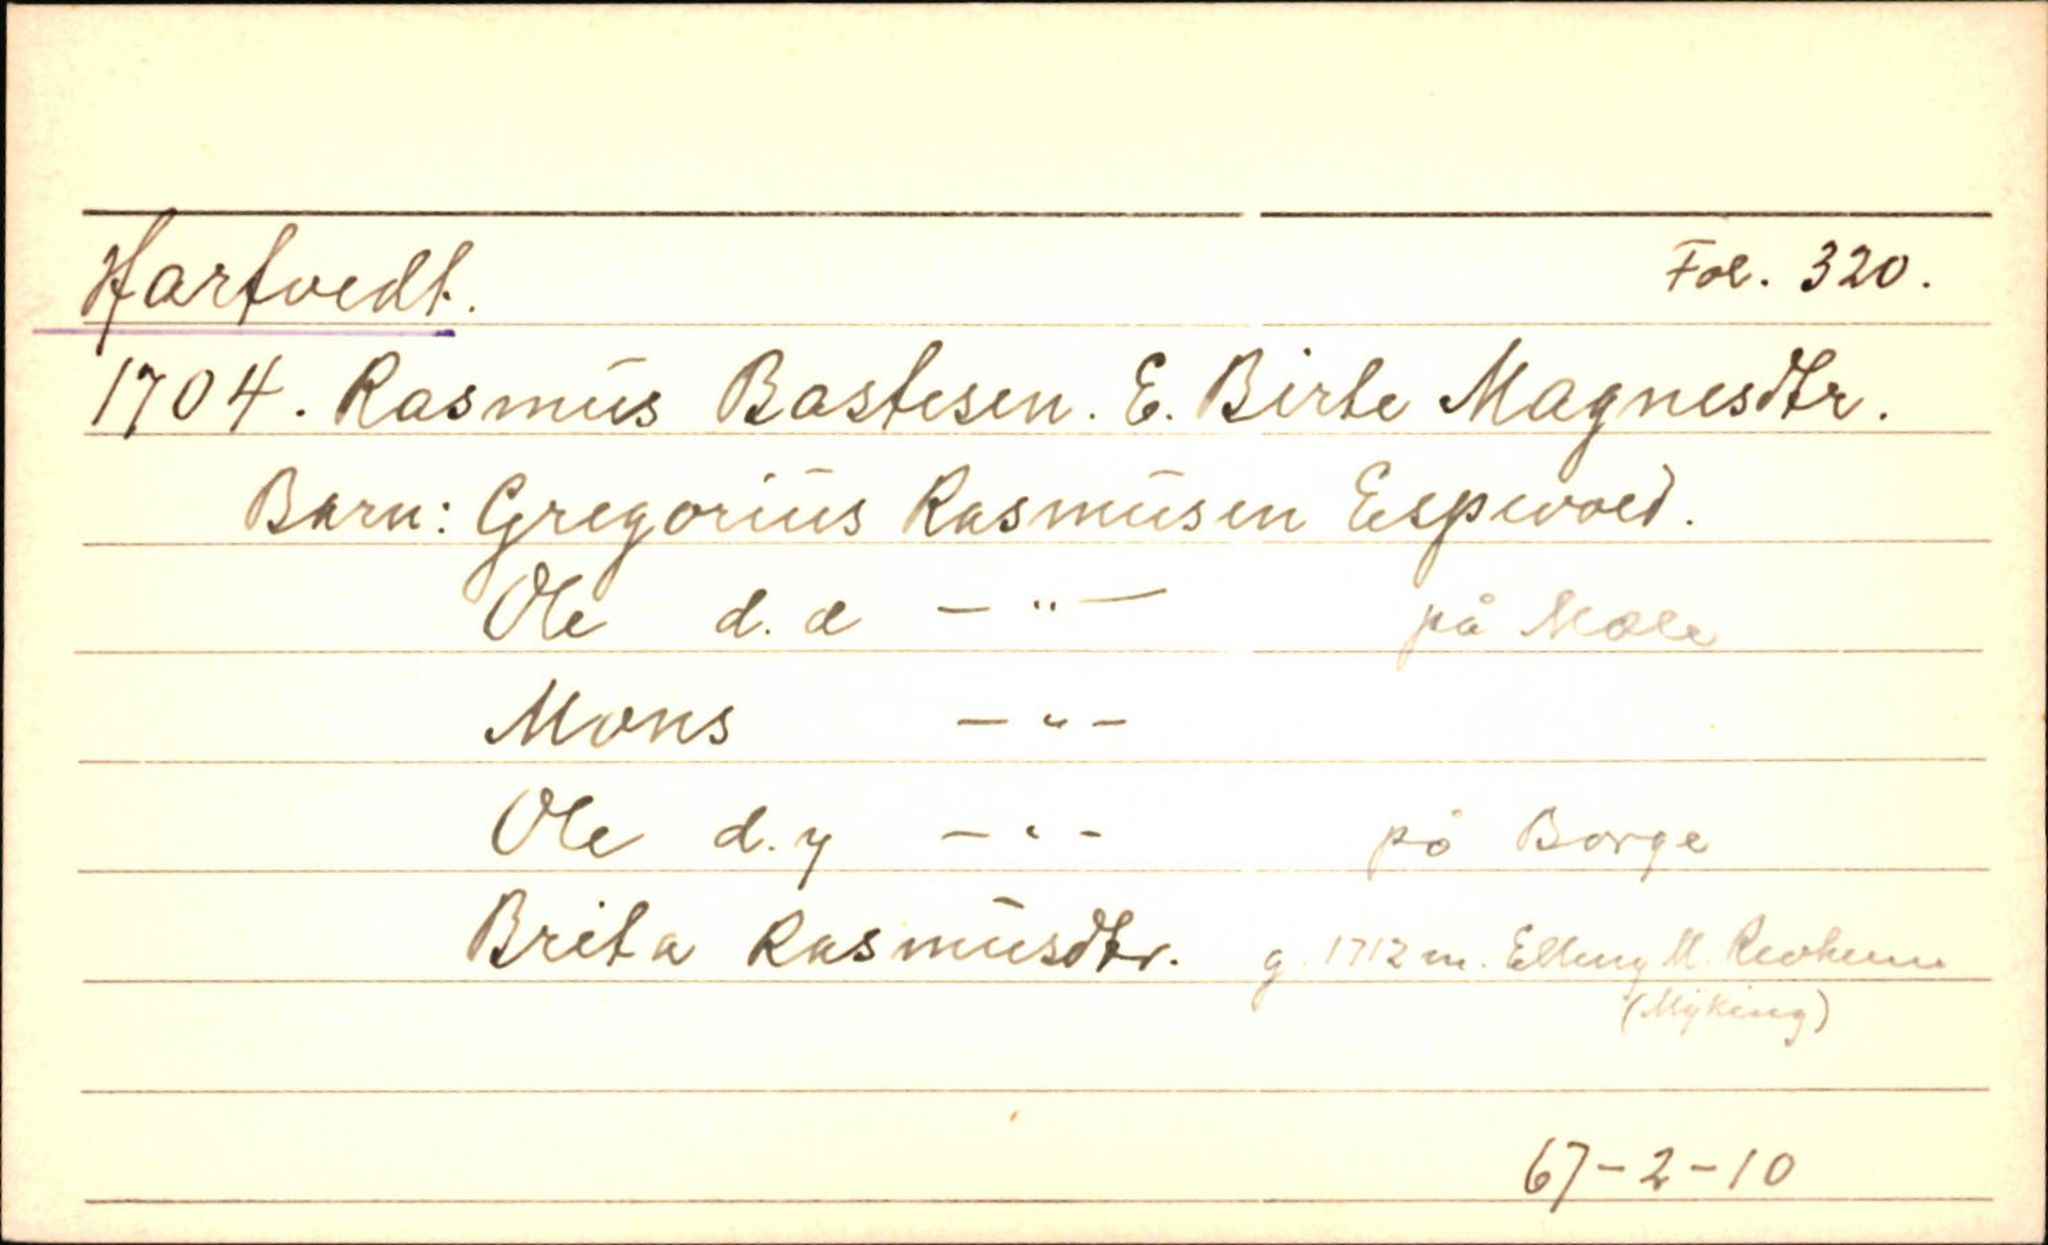 Hartvedt. Fol. 320.
1704. Rasmus Bastesen. E. Birte Magnesdtr.
Barn: Gregorius Rasmusen Espevold.
Ole d.e — " — på Mæle
Mons — " —
Ole d.y — " — på Borge
Brita Rasmusdtr. g. 1712 m. Elling M. Revheim
(Myking)
67-2-10